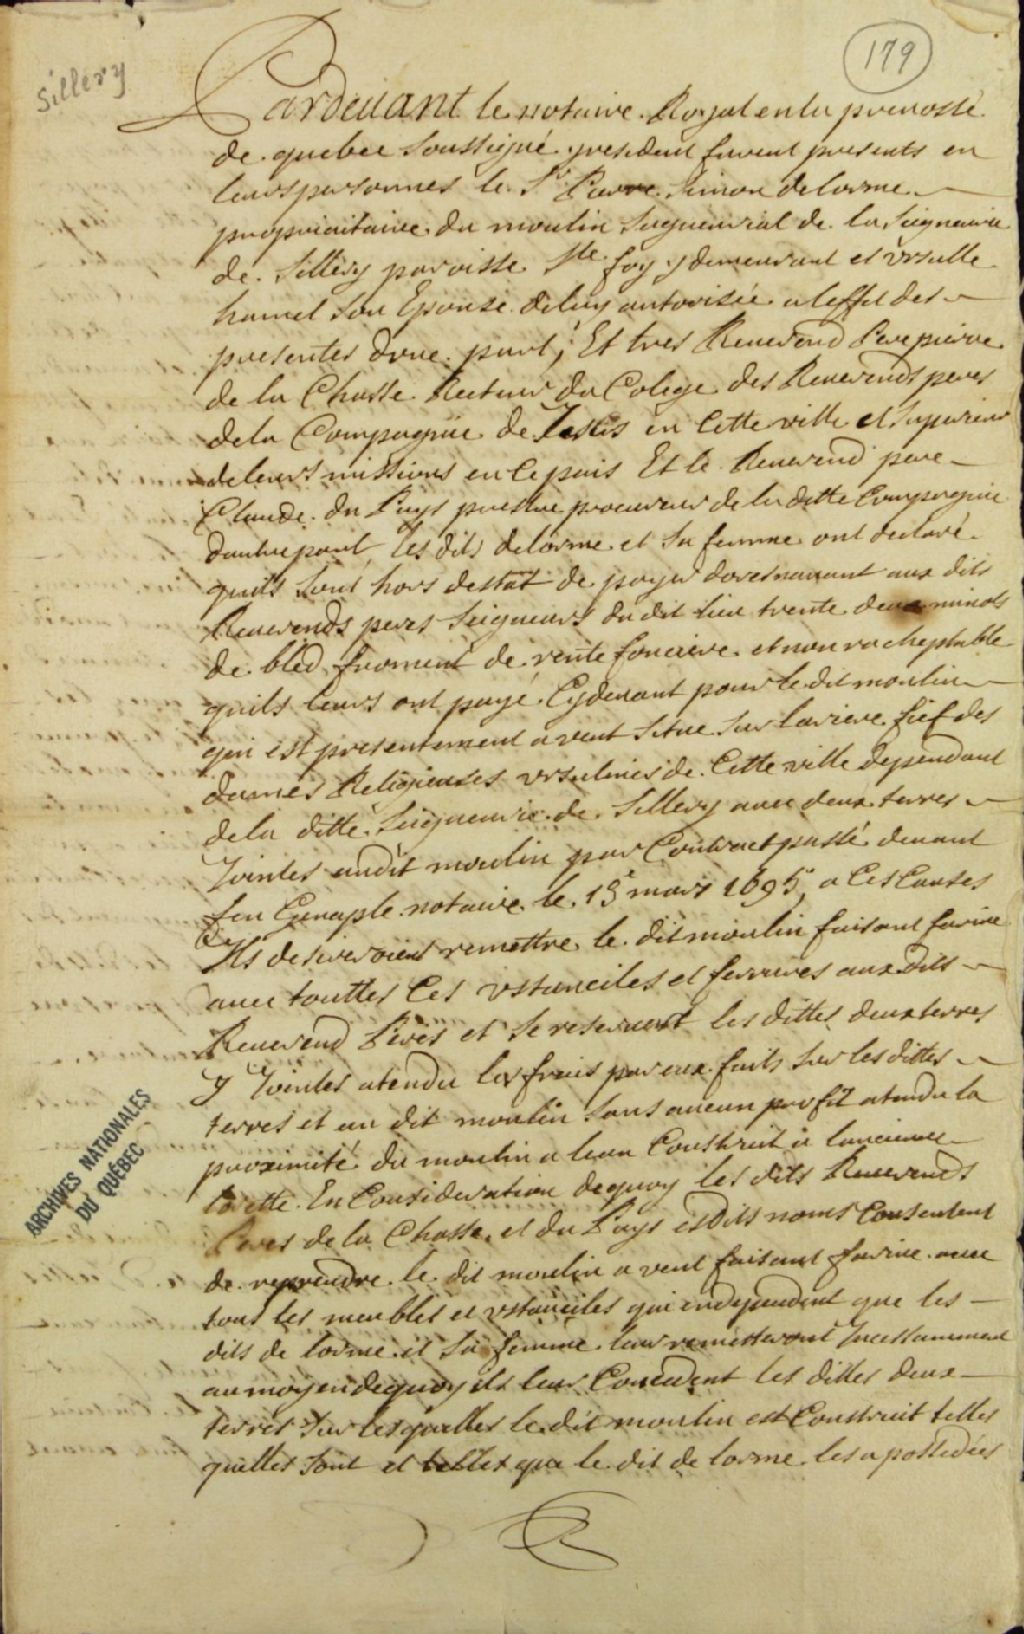 Sillery
179
Pardeuant le notaire Royal en la preuosté
de quebec Soussigné y resident furent presents en
leurs personnes le Sr Pierre Simon delorme
propriaitaire du moulin Seigneurial de la Seigneurie
de Sillery paroisse Ste foy y demeurant et Ursulle
hamel Son Epouse de luy autorisée a leffet des
presentes dvne part, Et tres Reuerend Pere pierre
de la Chasse Recteur du Colege des Reuerends peres
dela Compagnie de Jesus en Cette ville et Superieur
de leurs missions en Ce pais Et le Reuerend pere
Claude du Puys prestre procureur de la ditte Compagnie
dautre part, les dits delorme et Sa femme ont declaré
quils Sont hors destat de payer doresnauant aux dits
Reuerends peres Seigneurs du dit lieu trente deux minots
de bled froment de rente fonciere et non racheptable
quils leurs ont payé Cydeuant pour le dit moulin
qui est presentement a vent Situé Sur lariere fief des
dames Religieuses vrsulines de Cette ville dependant
dela ditte Seigneurie de Sillery auec deux terres
Jointes audit moulin par Contract passé deuant
feu Genaple notaire le 15e mars 1695, a Ces Causes
Ils desireroient remettre le dit moulin faisant farine
auec touttes Ces vstanciles et ferrures aux dits
Reuerend Peres et Se reseruent les dittes deux terres
y Jointes atendu les frais par eux faits Sur les dittes
terres et au dit moulin Sans aucun profit atendu la
proximité du moulin a leau Construit à lancienne
lorette. En Consideration dequoy les dits Reuerends
Peres de la Chasse et du Puys esdits noms Consentent
de reprendre le dit moulin a vent faisant farine auec
tous les meubles et vstanciles qui endependent que les
dits de lorme et Sa femme leur remetteront Incessamment
au moyen dequoy ils leur Concedent les dittes deux
terres Sur lesquelles le dit moulin est Construit telles
quelles Sont et telles que le dit de lorme les a possedées
ARCHIVES NATIONALES
DU QUÉBEC